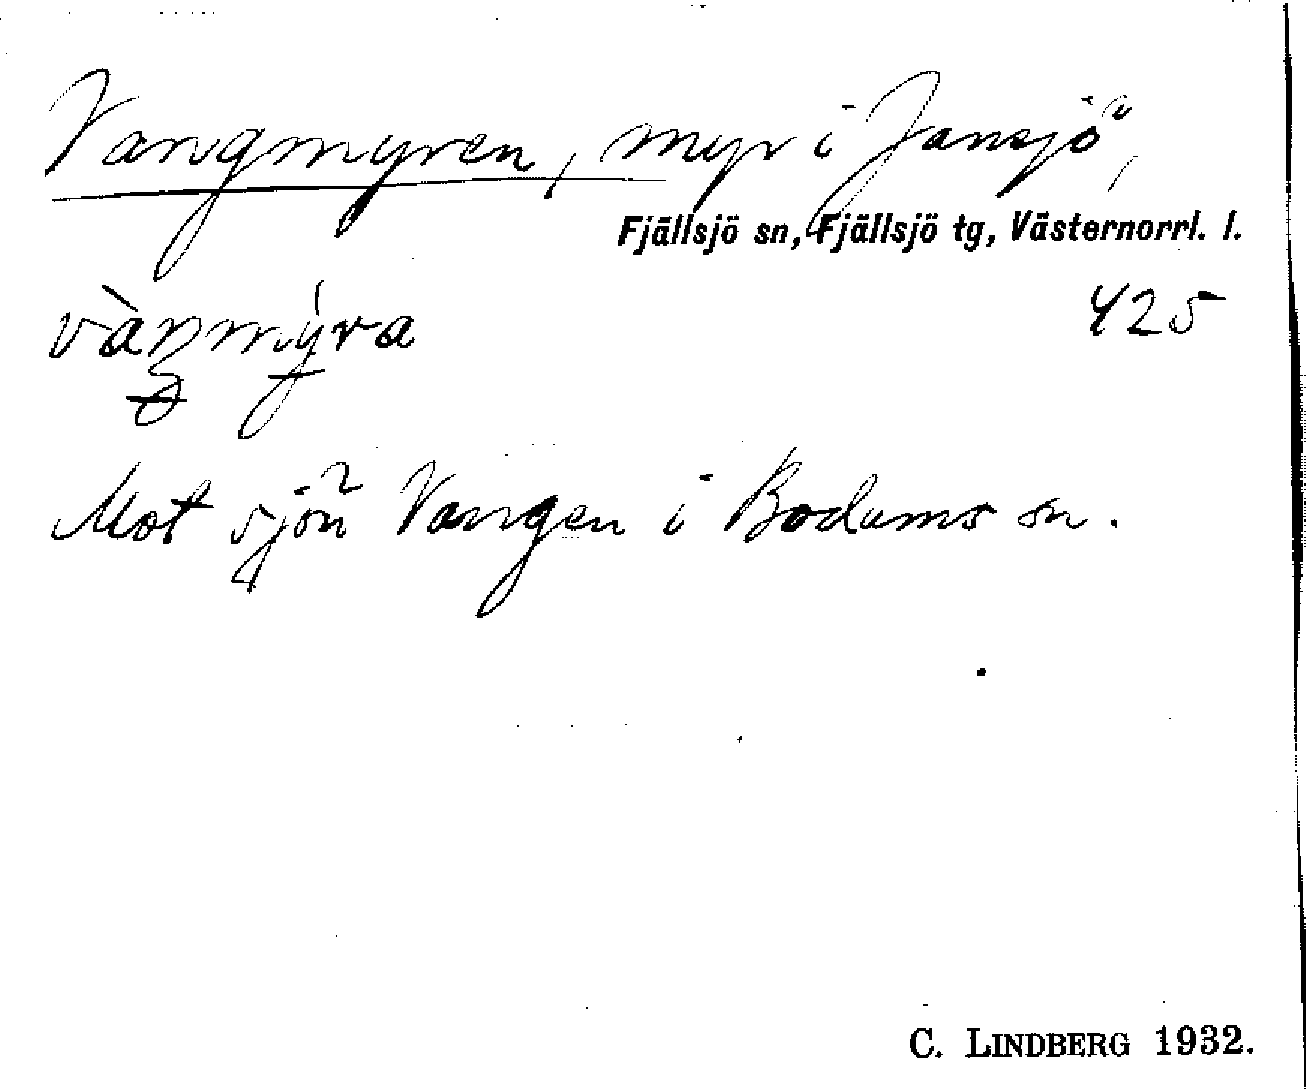 Vangmyren, myr i Jansjö,
Fjällsjö sn, Fjällsjö tg, Västernorrl. l.
vàŋmýra 425
Mot sjön Vangen i Bodums sn.
C. LINDBERG 1932.